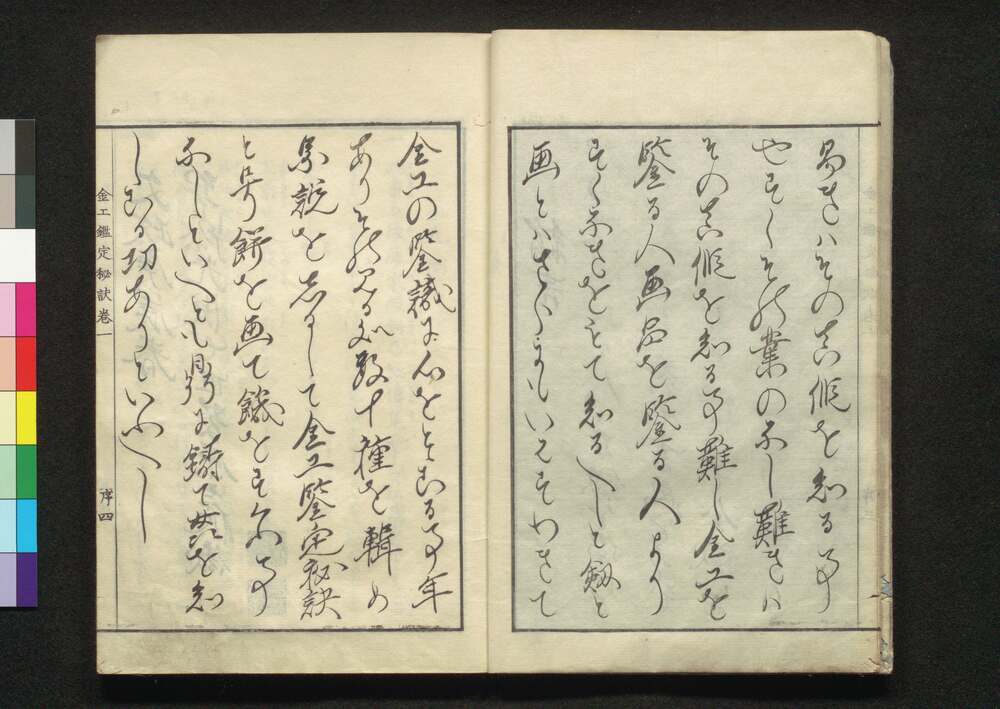 易きハその真偽を知る事
やすくその業のなし難きハ
その真偽を知る事難し金工を
鑒る人画品を鑒る人より
すくなきをもて知るへしと劔と
画とハさらにもいはすわきて
金工の鑒識に心をとむる事年
ありその見る処数十種を輯め
説をあらはして金工鑒定秘訣
と号け餅を画て饑をすくふ事
なしといへとも
しむる功ありといふへし
金工鑑定秘訣巻一
序四